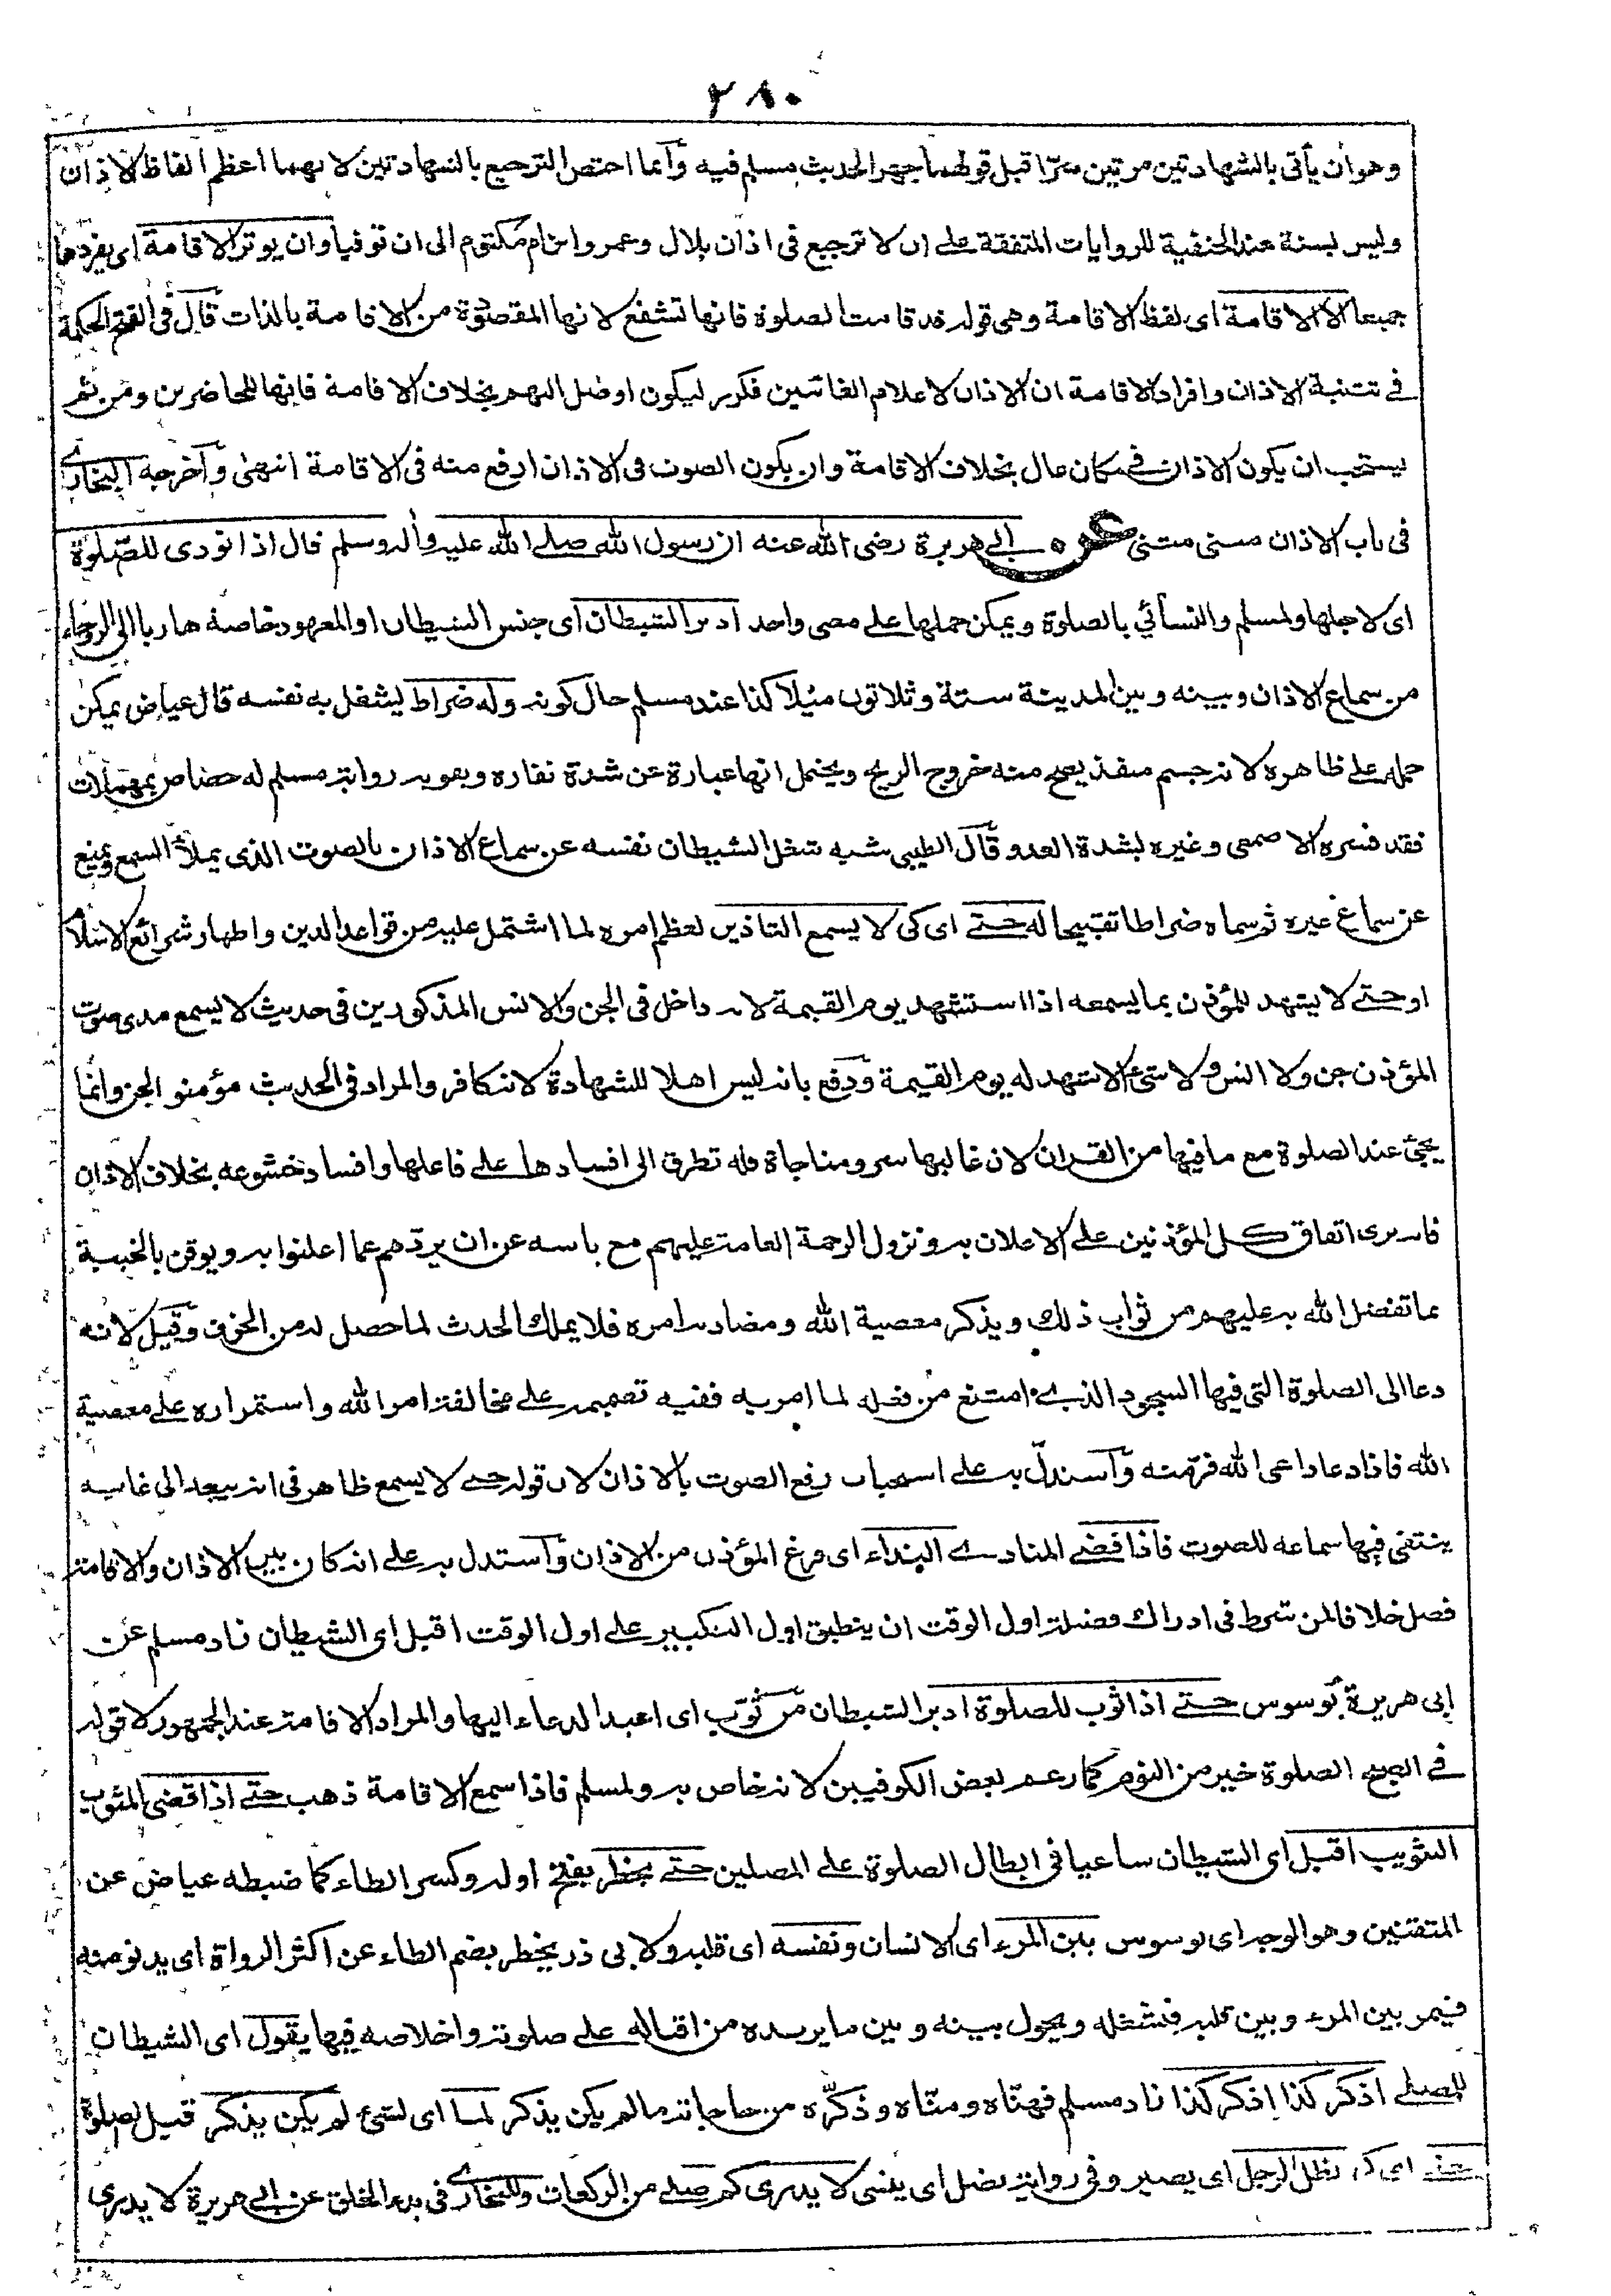 ٢٨٠
وهو أن يأتى بالشهادتين مرتين سرّا قبل قولهما جهرا لحديث مسلم فيه وآنما اختص الترجيع بالشهادتين لانهما اعظم الفاظ الاذان
وليس بسنة عند الحنفية للروايات المتفقة على ان لا ترجيع فى اذان بلال وعمرو ابن ام مكتوم الى ان توفيا وان يوتر الاقامة اى يفردها
جميعا الا الاقامة اى لفظ الاقامة وهى قوله قد قامت الصلوة فانها تشفع لانها المقصودة من الاقامة بالذات قآل فى الفتح الحكمة
فى تثنية الاذان وافراد الاقامة ان الاذان لاعلام الغائبين فكرر ليكون اوصل اليهم بخلاف الاقامة فانها للحاضرين ومن ثم
يستحب ان يكون الاذان فى مكان عال بخلاف الاقامة وان يكون الصوت فى الاذان ارفع منه فى الاقامة انتهى وآخرجه البخارى
فى باب الاذان مسنى مثنى عن ابى هريرة رضى الله عنه ان رسول الله صلى الله عليه وأله وسلم قال اذا نودى للصّلوة
اى لاجلها ولمسلم والنسائي بالصلوة ويمكن حملها على معنى واحد ادبر الشيطان اى جنس الشيطان او المعهود خاصة هاربا الى الروحاء
من سماع الاذان وبينه وبين المدينة ستة وثلاثون ميلا كذا عند مسلم حال كونه وله ضراط يشغل به نفسه قال عياض يمكن
حمله على ظاهره لانه جسم منفذ يصح منه خروج الريح ويحتمل انها عبارة عن شدة نفاره ويقويه رواية مسلم له حصاص بمهملات
فقد فسره الاصمعى وغيره بشدة العدو قآل الطيبى شبه شغل الشيطان نفسه عن سماع الاذان بالصوت الذى يملأ السمع ويمنع
عن سماع غيره ثم سماه ضراطا تقبيحا له حتى اى كى لا يسمع التاذين لعظم امره لما اشتمل عليه من قواعد الدين واظهار شرائع الاسلام
او حتى لا يشهد للمؤذن بما يسمعه اذا استشهد يوم القيمة لانه داخل فى الجن والانس المذكورين فى حديث لا يسمع مدى صوت
المؤذن جن ولا انس ولا شئ الا شهد له يوم القيمة ودفع بانه ليس اهلا للشهادة لانه كافر والمراد فى الحديث مؤمنو الجن وانما
يجئ عند الصلوة مع ما فيها من القران لان غالبها سر ومناجاة فله تطرق الى افسادها على فاعلها وافساد خشوعه بخلاف الاذان
فانه يرى اتفاق كل المؤذنين على الاعلان به ونزول الرحمة العامة عليهم مع ياسه عن ان يردّهم عما اعلنوا به ويوقن بالخيبة
بما تفضل الله به عليهم من ثواب ذلك ويذكر معصية الله ومضادته امره فلا يملك الحدث لما حصل له من الخوف وقيل لانه
دعا الى الصلوة التى فيها السجود الذى امتنع من فعله لما امر به ففيه تصميمه على مخالفة امر الله واستمراره على معصية
الله فاذا دعا داعى الله فرّ منه وآستدلّ به على استحباب رفع الصوت بالاذان لان قوله حتى لا يسمع ظاهر فى انه يبعد الى غاية
ينتفى فيها سماعه للصوت فاذا قضى المنادى النداء اى فرغ المؤذن من الاذان وآستدل به على انه كان بين الاذان والاقامة
فصل خلافا لمن شرط فى ادراك فضيلة اول الوقت ان ينطبق اول التكبير على اول الوقت اقبل اى الشيطان زاد مسلم عن
ابى هريرة يوسوس حتى اذا ثوب للصلوة ادبر الشيطان من ثوّب اى اعيد الدعاء اليها والمراد الاقامة عند الجمهور لا قوله
فى الصبح الصلوة خير من النوم كما زعم بعض الكوفيين لانه خاص به ولمسلم فاذا سمع الاقامة ذهب حتى اذا قضى المثوب
التثويب اقبل اى الشيطان ساعيا فى ابطال الصلوة على المصلين حتى يخطر بفتح اوله وكسر الطاء كما ضبطه عياض عن
المتقنين وهو الوجه اى يوسوس بين المرء اى الانسان ونفسه اى قلبه ولابى ذر يخطر بضم الطاء عن اكثر الرواة اى يدنو منه
فيمر بين المرء وبين قلبه فيشغله ويحول بينه وبين ما يريده من اقباله على صلوته واخلاصه فيها يقول اى الشيطان
للمصلى اذكر كذا اذكر كذا زاد مسلم فهنّاه ومنّاه وذكّره من حاجاته ما لم يكن يذكر لما اى لشئ لم يكن يذكر قبل الصلوة
حتى اى كى يظل الرجل اى يصير وفى رواية يضل اى ينسى لا يدرى كم صلى من الركعات وللبخارى فى بدء الخلق عن ابى هريرة لا يدرى